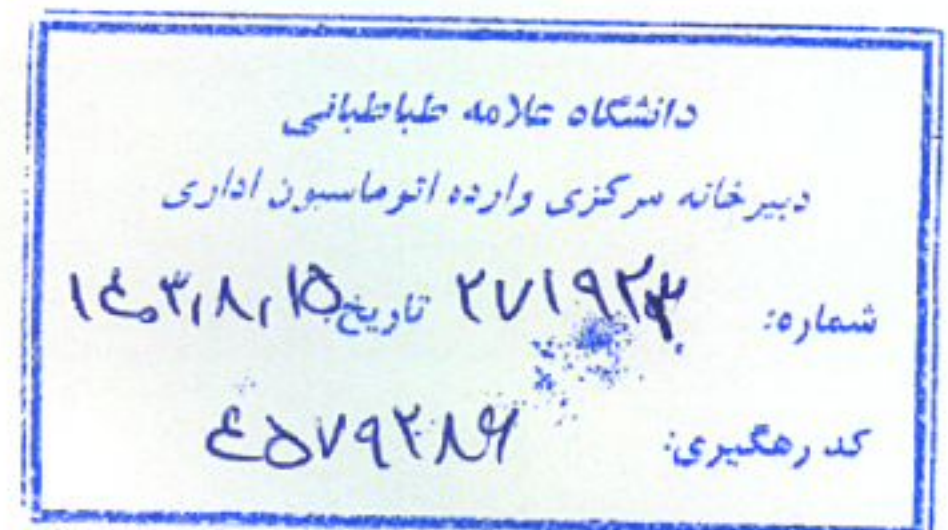 دانشگاه علامه طباطبائی
دبیرخانه مرکزی وارده اتوماسیون اداری
شماره: ۲۷۱۹۲۳ تاریخ ۱۴۰۳٫۸٫۱۵
کد رهگیری: ۴۵۷۹۲۸۶